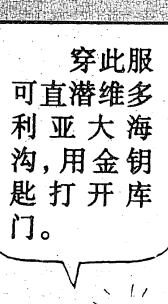 穿此服
可直潜维多
利亚大海
沟，用金钥
匙打开库
门。